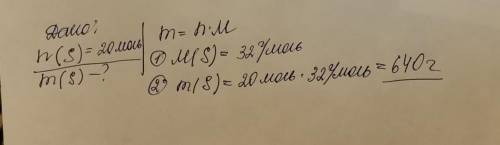 Дано:
n(S) = 20 моль
m(S) - ?
m = n·M
① M(S) = 32 г/моль
② m(S) = 20 моль · 32 г/моль = 640 г